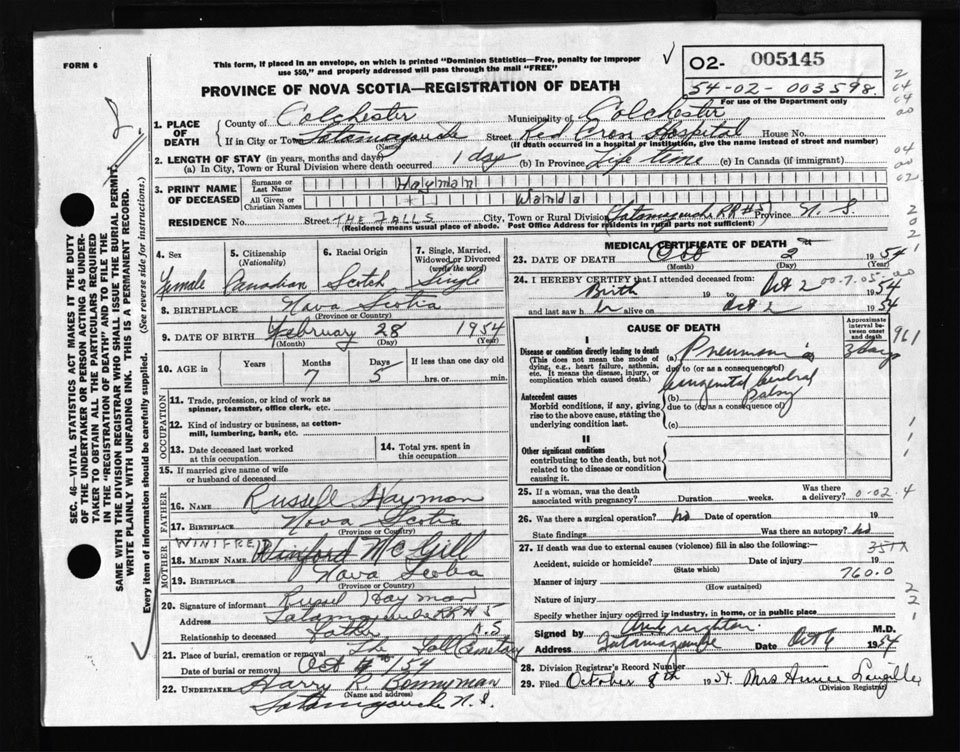 FORM 6
This form, if placed in an envelope, on which is printed "Dominion Statistics—Free, penalty for improper
use $50," and properly addressed will pass through the mail "FREE"
PROVINCE OF NOVA SCOTIA—REGISTRATION OF DEATH
02- 005145
54-02-003598.
For use of the Department only
1. PLACE OF DEATH
County of Colchester Municipality of Colchester
If in City or Town Tatamagouche (Name) Street Red Cross Hospital House No.
(If death occurred in a hospital or institution, give the name instead of street and number)
2. LENGTH OF STAY (in years, months and days)
(a) In City, Town or Rural Division where death occurred 1 day (b) In Province Life time (c) In Canada (if immigrant)
3. PRINT NAME OF DECEASED
Surname or Last Name Hayman
All Given or Christian Names Wanda
RESIDENCE No. Street THE FALLS City, Town or Rural Division (Tatamagouche RR #5) Province N. S.
(Residence means usual place of abode. Post Office Address for residents in rural parts not sufficient)
4. Sex Female
5. Citizenship (Nationality) Canadian
6. Racial Origin Scotch
7. Single, Married, Widowed or Divorced (write the word) Single
8. BIRTHPLACE Nova Scotia
(Province or Country)
9. DATE OF BIRTH February 28 1954
(Month) (Day) (Year)
10. AGE in Years Months 7 Days 5 If less than one day old
hrs. or min.
OCCUPATION
11. Trade, profession, or kind of work as
spinner, teamster, office clerk, etc.
12. Kind of industry or business, as cotton-
mill, lumbering, bank, etc.
13. Date deceased last worked
at this occupation
14. Total yrs. spent in
this occupation
15. If married give name of wife
or husband of deceased
FATHER
16. Name Russell Hayman
17. Birthplace Nova Scotia
(Province or Country)
MOTHER
WINIFRED
18. Maiden Name Winford McGill
19. Birthplace Nova Scotia
(Province or Country)
20. Signature of informant Hayman
Address Tatamagouche RR #5
Relationship to deceased Father N.S
21. Place of burial, cremation or removal The Falls Cemetary
Date of burial or removal Oct 54
22. UNDERTAKER Harry R. Bonnyman
(Name and address)
Tatamagouche N. S.
MEDICAL CERTIFICATE OF DEATH
23. DATE OF DEATH Oct 2nd 1954
(Month) (Day) (Year)
24. I HEREBY CERTIFY that I attended deceased from:
Birth 19 to Oct 2 1954
and last saw her alive on Oct 2 1954
00-7.05-00
CAUSE OF DEATH
Approximate interval between onset and death
I
Disease or condition directly leading to death
(This does not mean the mode of
dying, e.g., heart failure, asthenia,
etc. It means the disease, injury, or
complication which caused death.)
(a) Pneumonia 3 days
due to (or as a consequence of)
congenital cerebral
(b) palsy
due to (or as a consequence of)
(c)
Antecedent causes
Morbid conditions, if any, giving
rise to the above cause, stating the
underlying condition last.
II
Other significant conditions
contributing to the death, but not
related to the disease or condition
causing it.
961
25. If a woman, was the death
associated with pregnancy? Duration weeks. Was there
a delivery? 0-02.4
26. Was there a surgical operation? no Date of operation 19
State findings Was there an autopsy? no
27. If death was due to external causes (violence) fill in also the following:—
Accident, suicide or homicide? Date of injury 19
(State which)
760.0
Manner of injury
(How sustained)
Nature of injury
Specify whether injury occurred in industry, in home, or in public place
Signed by M.D.
Address Tatamagouche Date Oct 6 1954
28. Division Registrar's Record Number
29. Filed October 8th 1954 Mrs Annie Langille
(Division Registrar)
SEC. 46—VITAL STATISTICS ACT MAKES IT THE DUTY
OF THE UNDERTAKER OR PERSON ACTING AS UNDER-
TAKER TO OBTAIN ALL THE PARTICULARS REQUIRED
IN THE "REGISTRATION OF DEATH" AND TO FILE THE
SAME WITH THE DIVISION REGISTRAR WHO SHALL ISSUE THE BURIAL PERMIT.
WRITE PLAINLY WITH UNFADING INK. THIS IS A PERMANENT RECORD.
Every item of information should be carefully supplied. (See reverse side for instructions.)